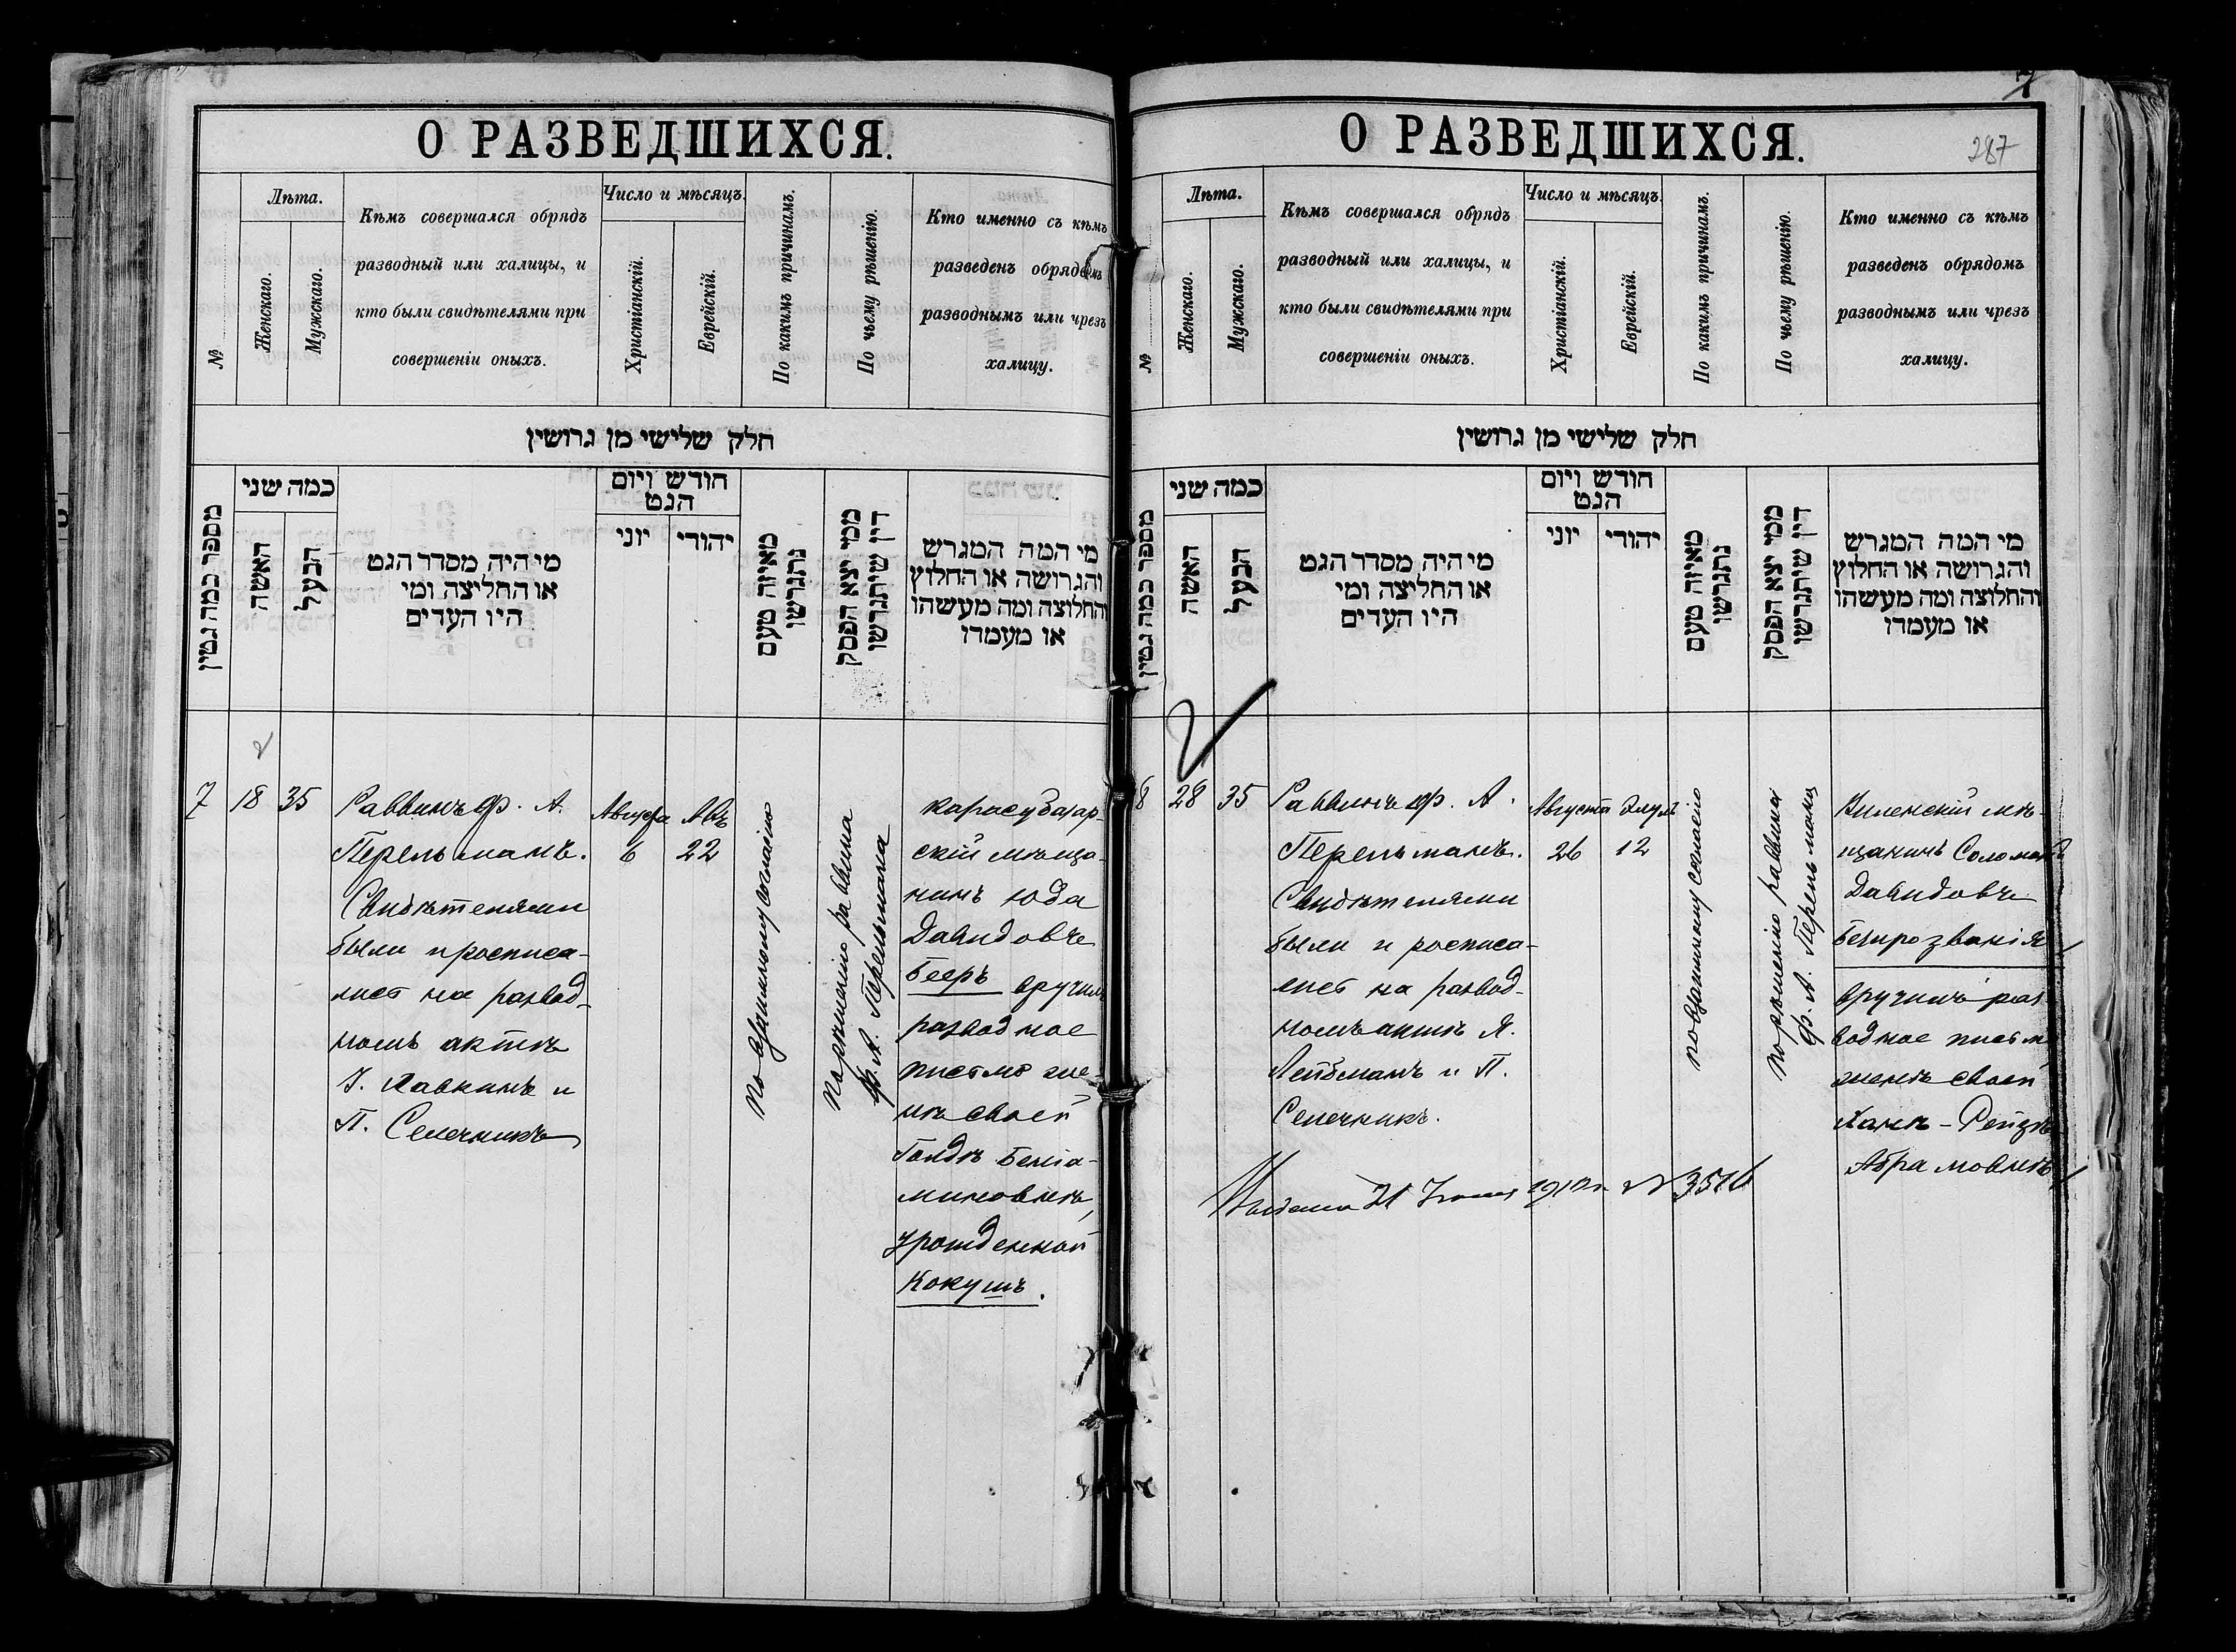 О РАЗВЕДШИХСЯ.
№
Лѣта.
Женскаго.
Мужскаго.
Кѣмъ совершался обрядъ
разводный или халицы, и
кто были свидѣтелями при
совершеніи оныхъ.
Число и мѣсяцъ.
Христіанскій.
Еврейскій.
По какимъ причинамъ.
По чьему рѣшенію.
Кто именно съ кѣмъ
разведенъ обрядомъ
разводнымъ или чрезъ
халицу.
חלק שלישי מן גרושין
מספר כמה גטין
כמה שני
האשה
הבעל
מי היה מסדר הגט
או החליצה ומי
היו העדים
חודש ויום
הגט
יוני
יהודי
מאיזה טעם
נתגרשו
ממי יצא הפסק
דין שיתגרשו
מי המה המגרש
והגרושה או החלוץ
והחלוצה ומה מעשהו
או מעמדו
7
18
35
Раввинъ Ф. А.
Перельманъ.
Свидѣтелями
были и росписа-
лись на развод-
номъ актѣ
І. Хавкинъ и
П. Селечникъ
Августа
6
Авъ
22
по взаимному согласію
по рѣшенію раввина
Ф. А. Перельмана
Карасубазар-
скій мѣща-
нинъ Юда
Давидовъ
Бееръ вручилъ
разводное
письмо же-
нѣ своей
Голдѣ Беніа-
миновнѣ,
урожденной
Кокушъ.
О РАЗВЕДШИХСЯ.
287
№
Лѣта.
Женскаго.
Мужскаго.
Кѣмъ совершался обрядъ
разводный или халицы, и
кто были свидѣтелями при
совершеніи оныхъ.
Число и мѣсяцъ.
Христіанскій.
Еврейскій.
По какимъ причинамъ.
По чьему рѣшенію.
Кто именно съ кѣмъ
разведенъ обрядомъ
разводнымъ или чрезъ
халицу.
חלק שלישי מן גרושין
מספר כמה גטין
כמה שני
האשה
הבעל
מי היה מסדר הגט
או החליצה ומי
היו העדים
חודש ויום
הגט
יוני
יהודי
מאיזה טעם
נתגרשו
ממי יצא הפסק
דין שיתגרשו
מי המה המגרש
והגרושה או החלוץ
והחלוצה ומה מעשהו
או מעמדו
8
28
35
Раввинъ Ф. А.
Перельманъ.
Свидѣтелями
были и росписа-
лись на развод-
номъ актѣ Я.
Лейбманъ и П.
Селечникъ.
Августа
26
Элулъ
12
по взаимному согласію
по рѣшенію раввина
Ф. А. Перельмана
Виленскій мѣ-
щанинъ Соломонъ
Давидовъ
Безпрозванія
вручилъ раз-
водное письмо
женѣ своей
Ханѣ-Рейзѣ
Абрамовнѣ
21 191 г. № 3516